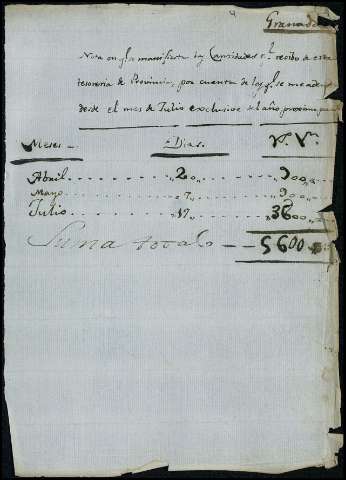 Granada
Nota en q.e se manifiesta las Cantidades q.e recibo de esta
tesoreria de Provincia, por cuenta de lo q.e se me adeu
desde el mes de Julio exclusive del año proximo pa
Meses Dias. Rs. Vn.
Abril 20 900
Mayo 7 900
Julio 17 3600
Suma total 5600